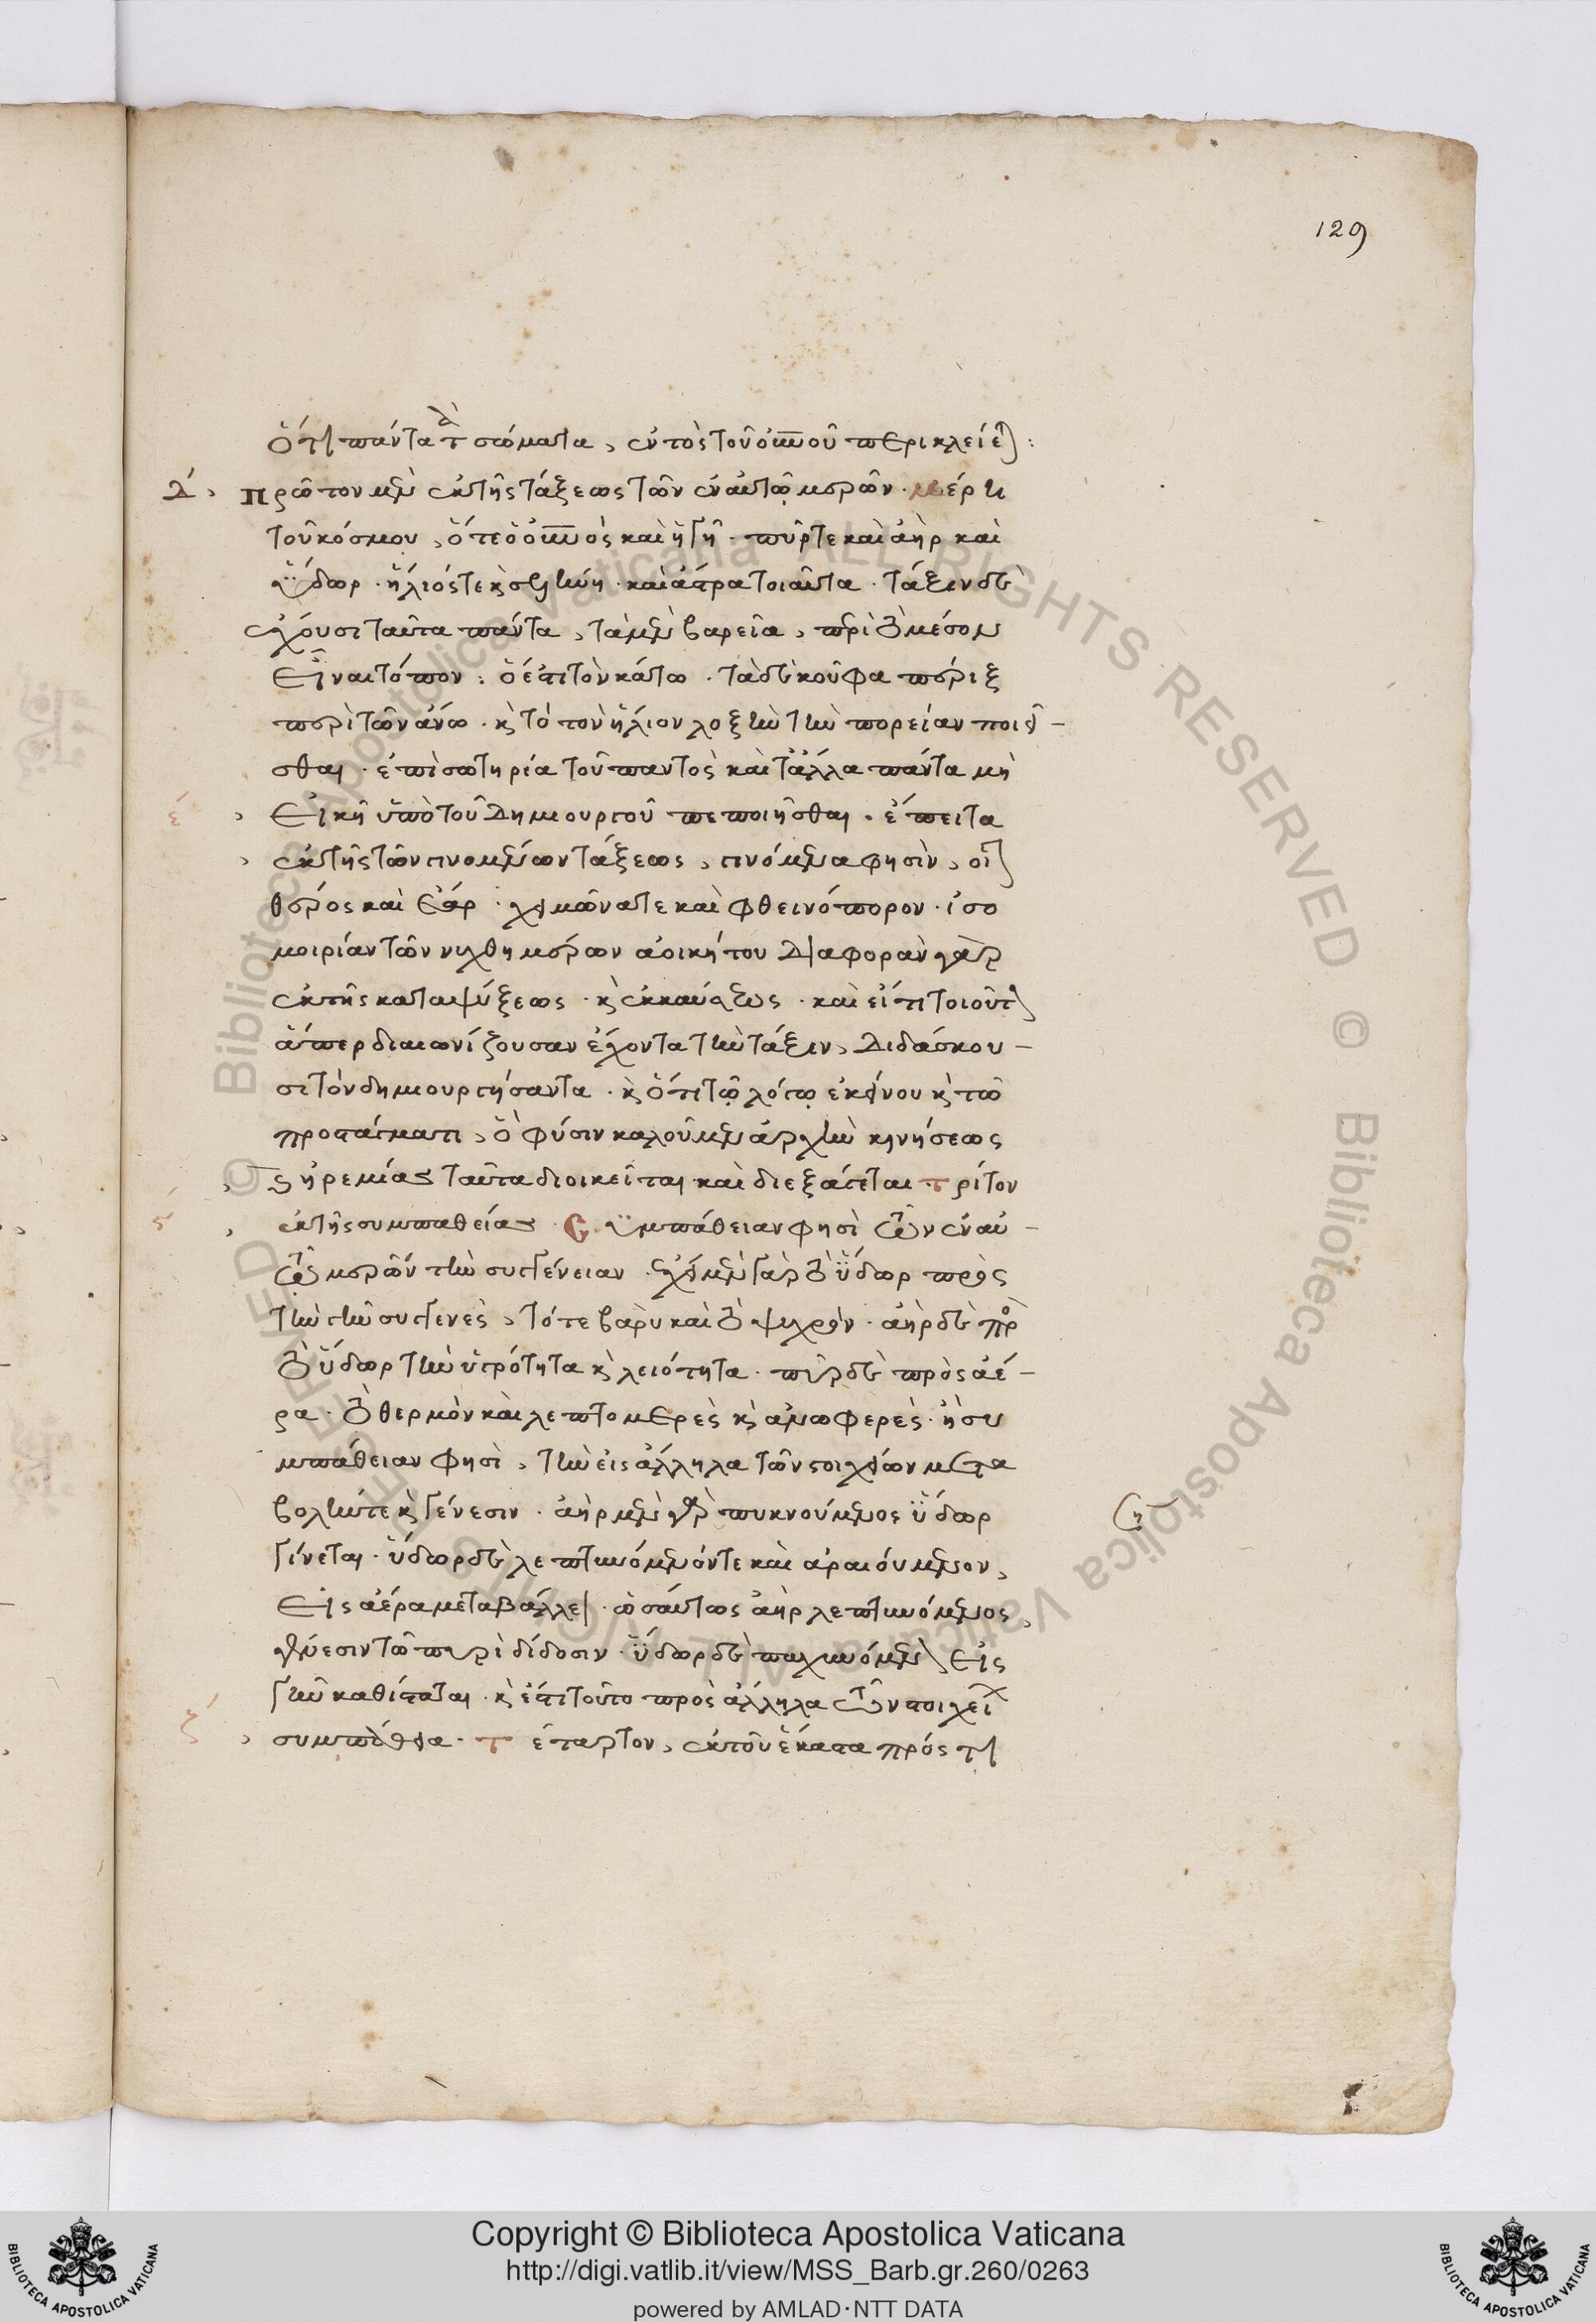 129
ὅτι πάντα τὰ σώματα, ἐντὸς τοῦ οὐνοῦ περικλείεται :
Δ΄ πρῶτον μὲν ἐκ τῆς τάξεως τῶν ἐν αὐτῷ μερῶν · μέρη
τοῦ κόσμου, ὅτε ὁ οὐνὸς καὶ ἡ γῆ · πῦρ τε καὶ ἀὴρ καὶ
ὕδωρ · ἥλιός τε κὶ σελήνη · καὶ ἄστρα τοιαῦτα · τάξιν δὲ
ἐχουσι ταῦτα πάντα, τὰ μὲν βαρεῖα, περὶ τὸ μέσον
εἶναι τόπον : ὅ ἐστι τὸν κάτω · τὰ δὲ κοῦφα πέριξ
περὶ τὸν ἄνω · κὶ τὸ τὸν ἥλιον λοξὴν τὴν πορείαν ποιεῖ-
σθαι · ἐπὶ σωτηρία τοῦ παντὸς καὶ τἄλλα πάντα μὴ
έ εἰκῆ ὑπὸ τοῦ Δημιουργοῦ πεποιῆσθαι · ἔπειτα
ἐκ τῆς τῶν γινομένων τάξεως, γινόμενα φησὶν, οἷον
θέρος καὶ ἔαρ · χειμῶνα τε καὶ φθεινόπορον · ἰσο
μοιρίαν τῶν νυχθημέρων ἀοικήτου Διαφορὰν γὰρ
ἐκ τῆς καταψύξεως · κὶ ἐκκαύσεως · καὶ εἴ τι τοιοῦτον
ἅπερ διαιωνίζουσαν ἔχοντα τὴν τάξιν, Διδάσκου-
σι τὸν δημιουργήσαντα · κὶ ὅτι τῷ λόγῳ ἐκείνου κὶ τῶ
προστάγματι, ὃ φύσιν καλοῦμεν ἀρχὴν κινήσεως
κὶ ἠρεμίας ταῦτα διοικεῖται καὶ διεξάγεται · τρίτον
ς΄ ἐκ τῆς συμπαθείας · Συμπάθειαν φησὶ τῶν ἐν αὐ-
τῷ μερῶν τὴν συγγένειαν · ἔχει μὲν γὰρ τὸ ὕδωρ πρὸς
τὴν γῆν συγγενὲς, τό τε βαρὺ καὶ τὸ ψυχρόν · ἀὴρ δὲ πρὸς
τὸ ὕδωρ τὴν ὑγρότητα κὶ λειότητα · πῦρ δὲ πρὸς ἀέ-
ρα · τὸ θερμὸν καὶ λεπτομερὲς κὶ ἀνωφερὲς · ἢ συ
μπάθειαν φησὶ, τὴν εἰς ἄλληλα τῶν στοιχείων μετα
βολήν τε κὶ γένεσιν · ἀὴρ μὲν γὰρ πυκνούμενος ὕδωρ
γίνεται · ὕδωρ δὲ λεπτυνόμενόν τε καὶ ἀραιούμενον,
εἰς ἀέρα μεταβάλλει · ὡσαύτως ἀὴρ λεπτυνόμενος,
γένεσιν τῶ πυρὶ δίδωσιν · ὕδωρ δὲ παχυνόμενον εἰς
γῆν καθίσταται · κὶ ἔστι τοῦτο πρὸς ἄλληλα τῶν στοιχείων
ζ΄ συμπάθεια · τέταρτον, ἐκ τοῦ ἕκαστα πρός τι
Copyright © Biblioteca Apostolica Vaticana
http://digi.vatlib.it/view/MSS_Barb.gr.260/0263
powered by AMLAD·NTT DATA